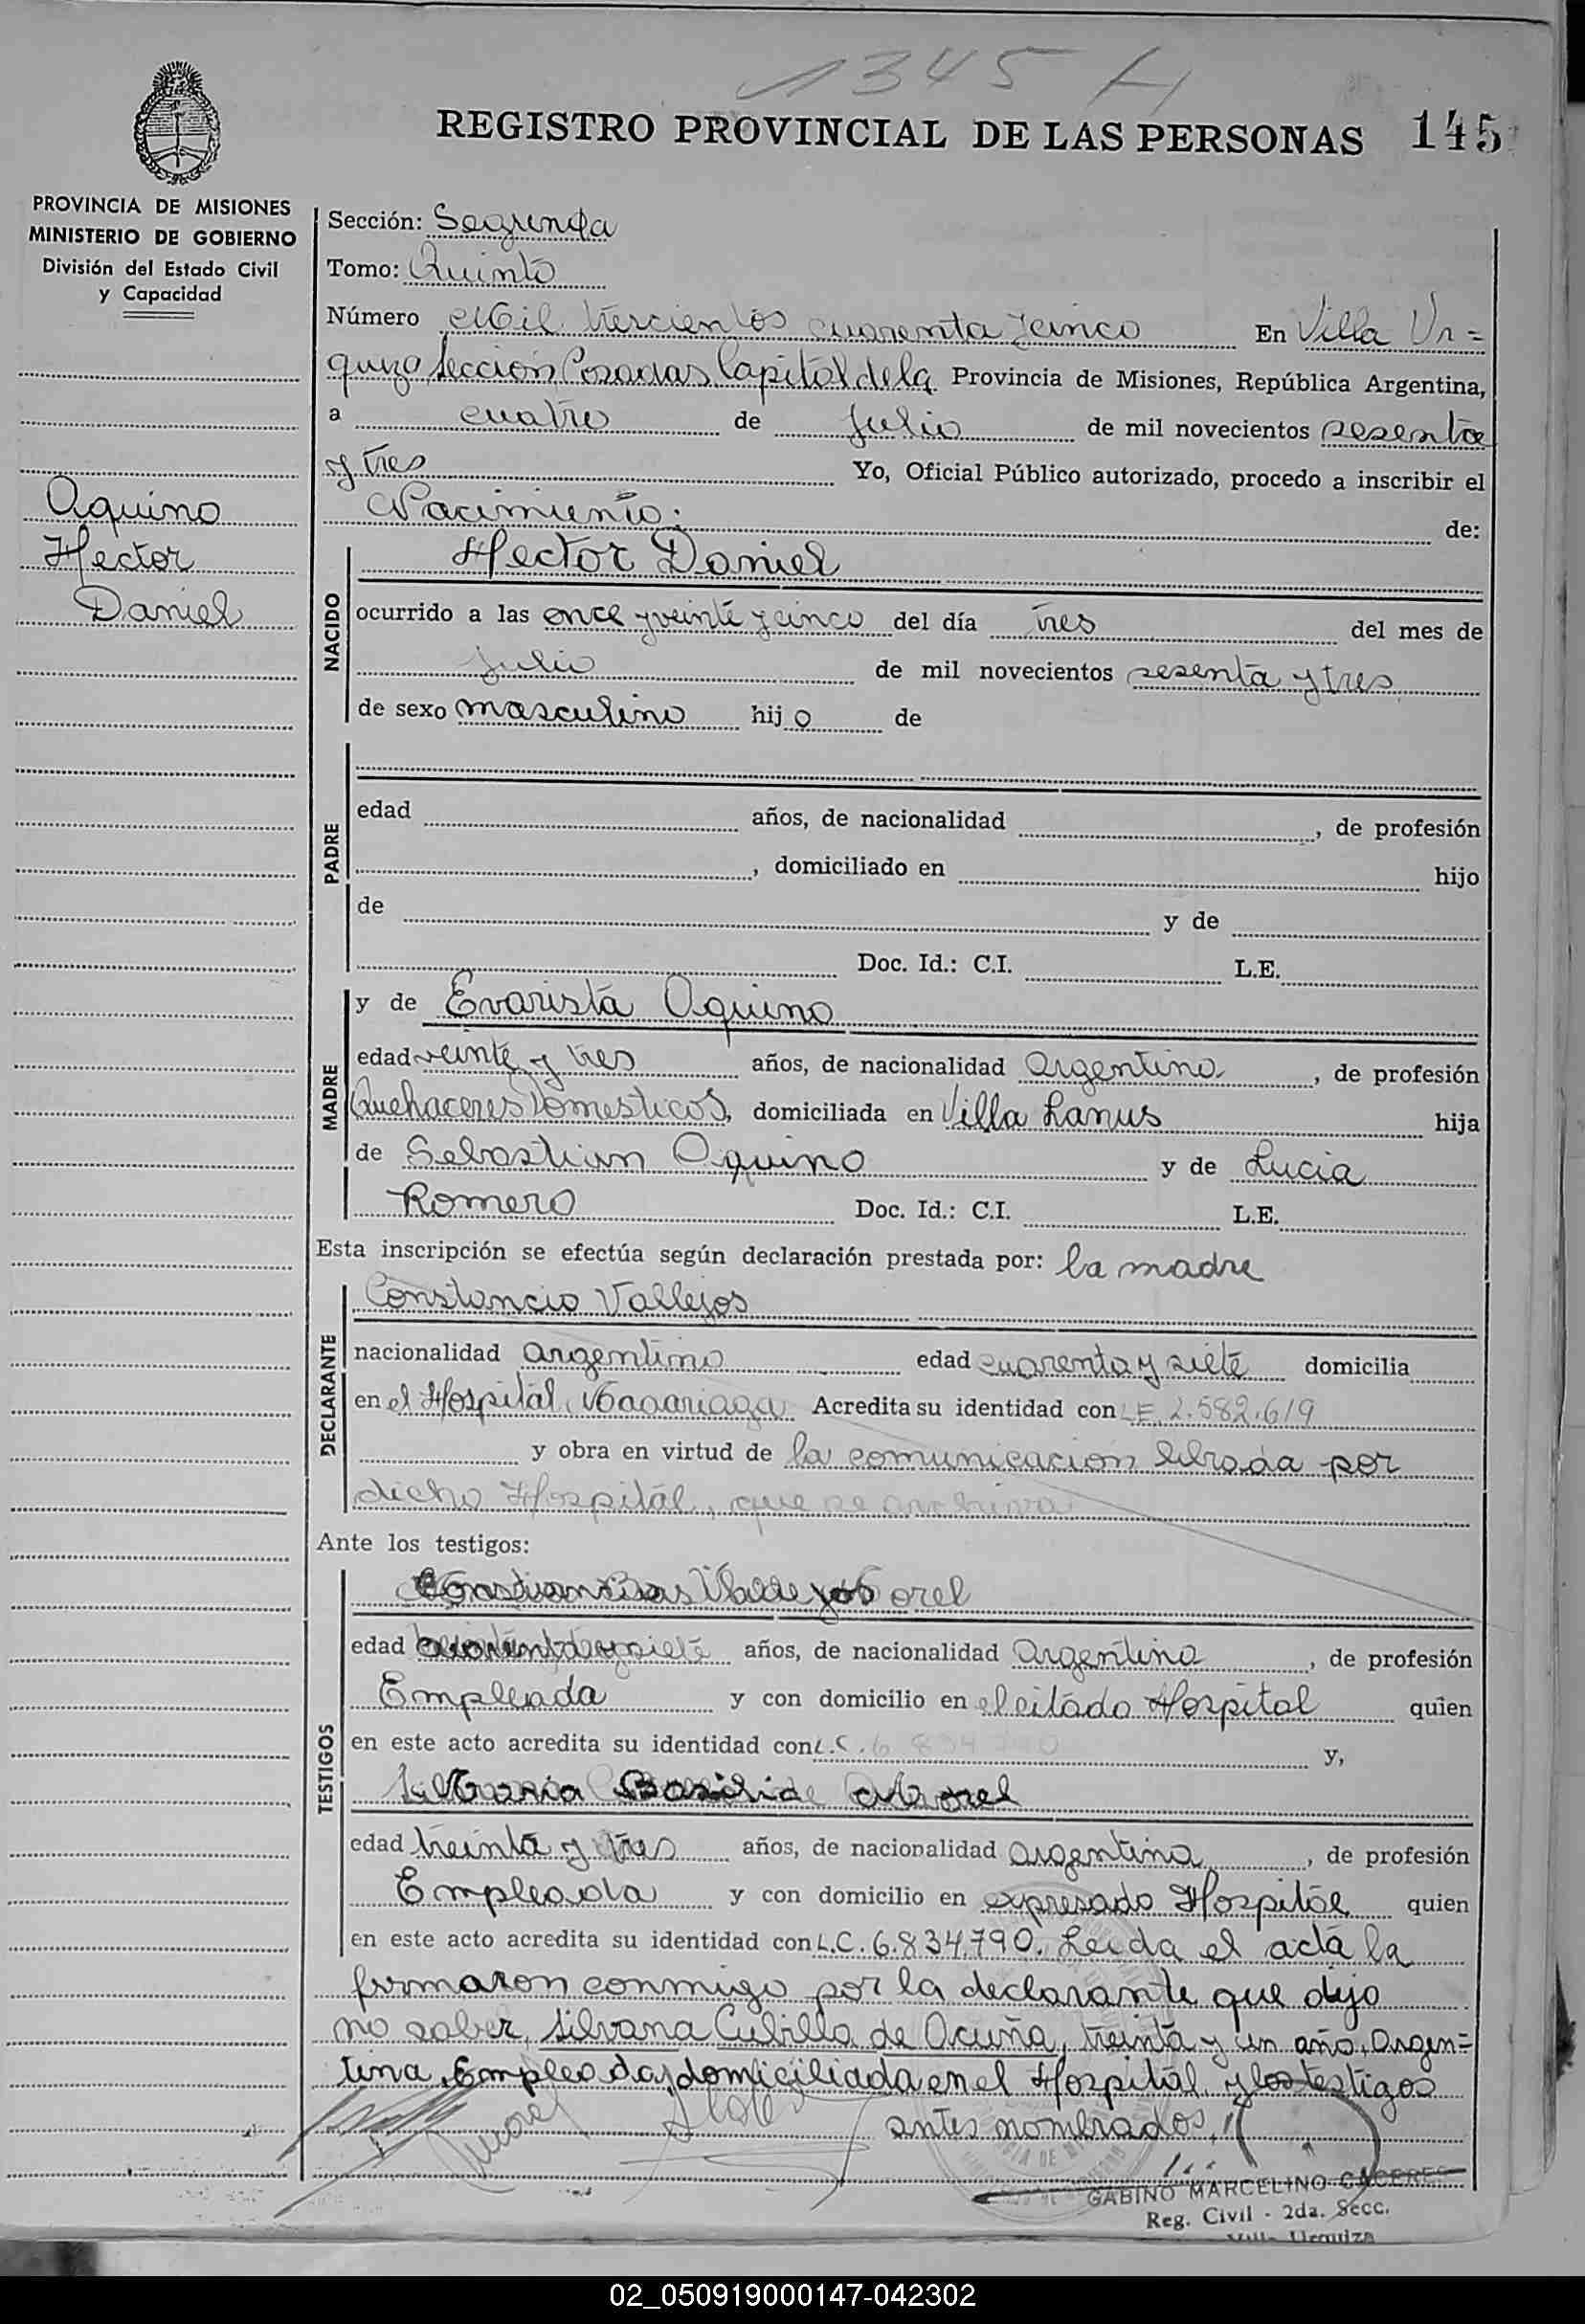 1345 H
REGISTRO PROVINCIAL DE LAS PERSONAS 145
PROVINCIA DE MISIONES
MINISTERIO DE GOBIERNO
División del Estado Civil
y Capacidad
Aquino
Hector
Daniel
Sección: Segunda
Tomo: Quinto
Número Mil trescientos cuarenta y cinco En Villa Ur=
quiza, Sección Posadas Capital de la Provincia de Misiones, República Argentina,
a cuatro de Julio de mil novecientos sesenta
y tres Yo, Oficial Público autorizado, procedo a inscribir el
Nacimiento: de:
NACIDO
Hector Daniel
ocurrido a las once y veinte y cinco del día tres del mes de
Julio de mil novecientos sesenta y tres
de sexo masculino hijo de
PADRE
edad años, de nacionalidad , de profesión
, domiciliado en hijo
de y de
Doc. Id.: C.I. L.E.
MADRE
y de Evarista Aquino
edad veinte y tres años, de nacionalidad Argentina , de profesión
Quehaceres Domesticos, domiciliada en Villa Lanus hija
de Sebastian Aquino y de Lucia
Romero Doc. Id.: C.I. L.E.
Esta inscripción se efectúa según declaración prestada por: la madre
DECLARANTE
Constancio Vallejos
nacionalidad argentino edad cuarenta y siete domicilia
en el Hospital Madariaga Acredita su identidad con L.E. 2.582.619
y obra en virtud de la comunicacion librada por
dicho Hospital, que se archiva
Ante los testigos:
TESTIGOS
orel
edad años, de nacionalidad Argentina , de profesión
Empleada y con domicilio en el citado Hospital quien
en este acto acredita su identidad con L.C. 6 834 790 y,
Maria Morel
edad treinta y tres años, de nacionalidad argentina , de profesión
Empleada y con domicilio en expresado Hospital quien
en este acto acredita su identidad con L.C. 6.834.790. Leida el acta la
firmaron conmigo por la declarante que dijo
no saber, Silvana Cubilla de Acuña, treinta y un año, Argen=
tina, Empleada, domiciliada en el Hospital y los testigos
antes nombrados.
GABINO MARCELINO CACERES
Reg. Civil - 2da. Secc.
Villa Urquiza
02_050919000147-042302